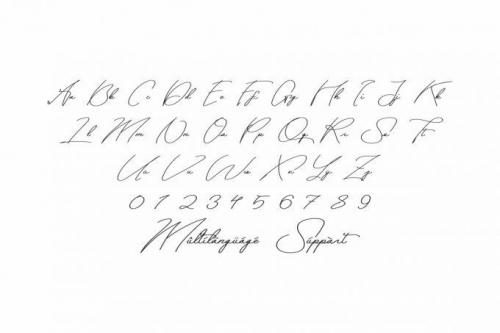 Aa Bb Cc Dd Ee Ff Gg Hh Ii Jj Kk
Ll Mm Nn Oo Pp Qq Rr Ss Tt
Uu Vv Ww Xx Yy Zz
0 1 2 3 4 5 6 7 8 9
Múltilángüágé Süppàrt